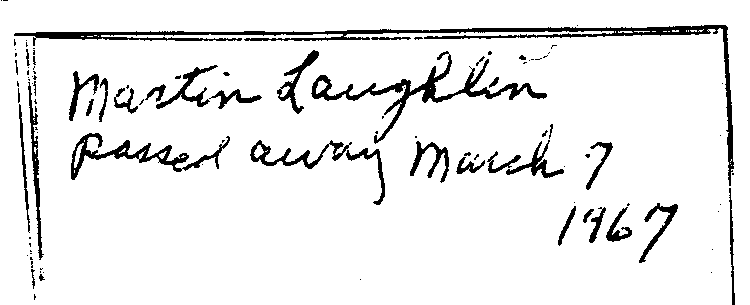 Martin Laughlin
passed away March 7
1967